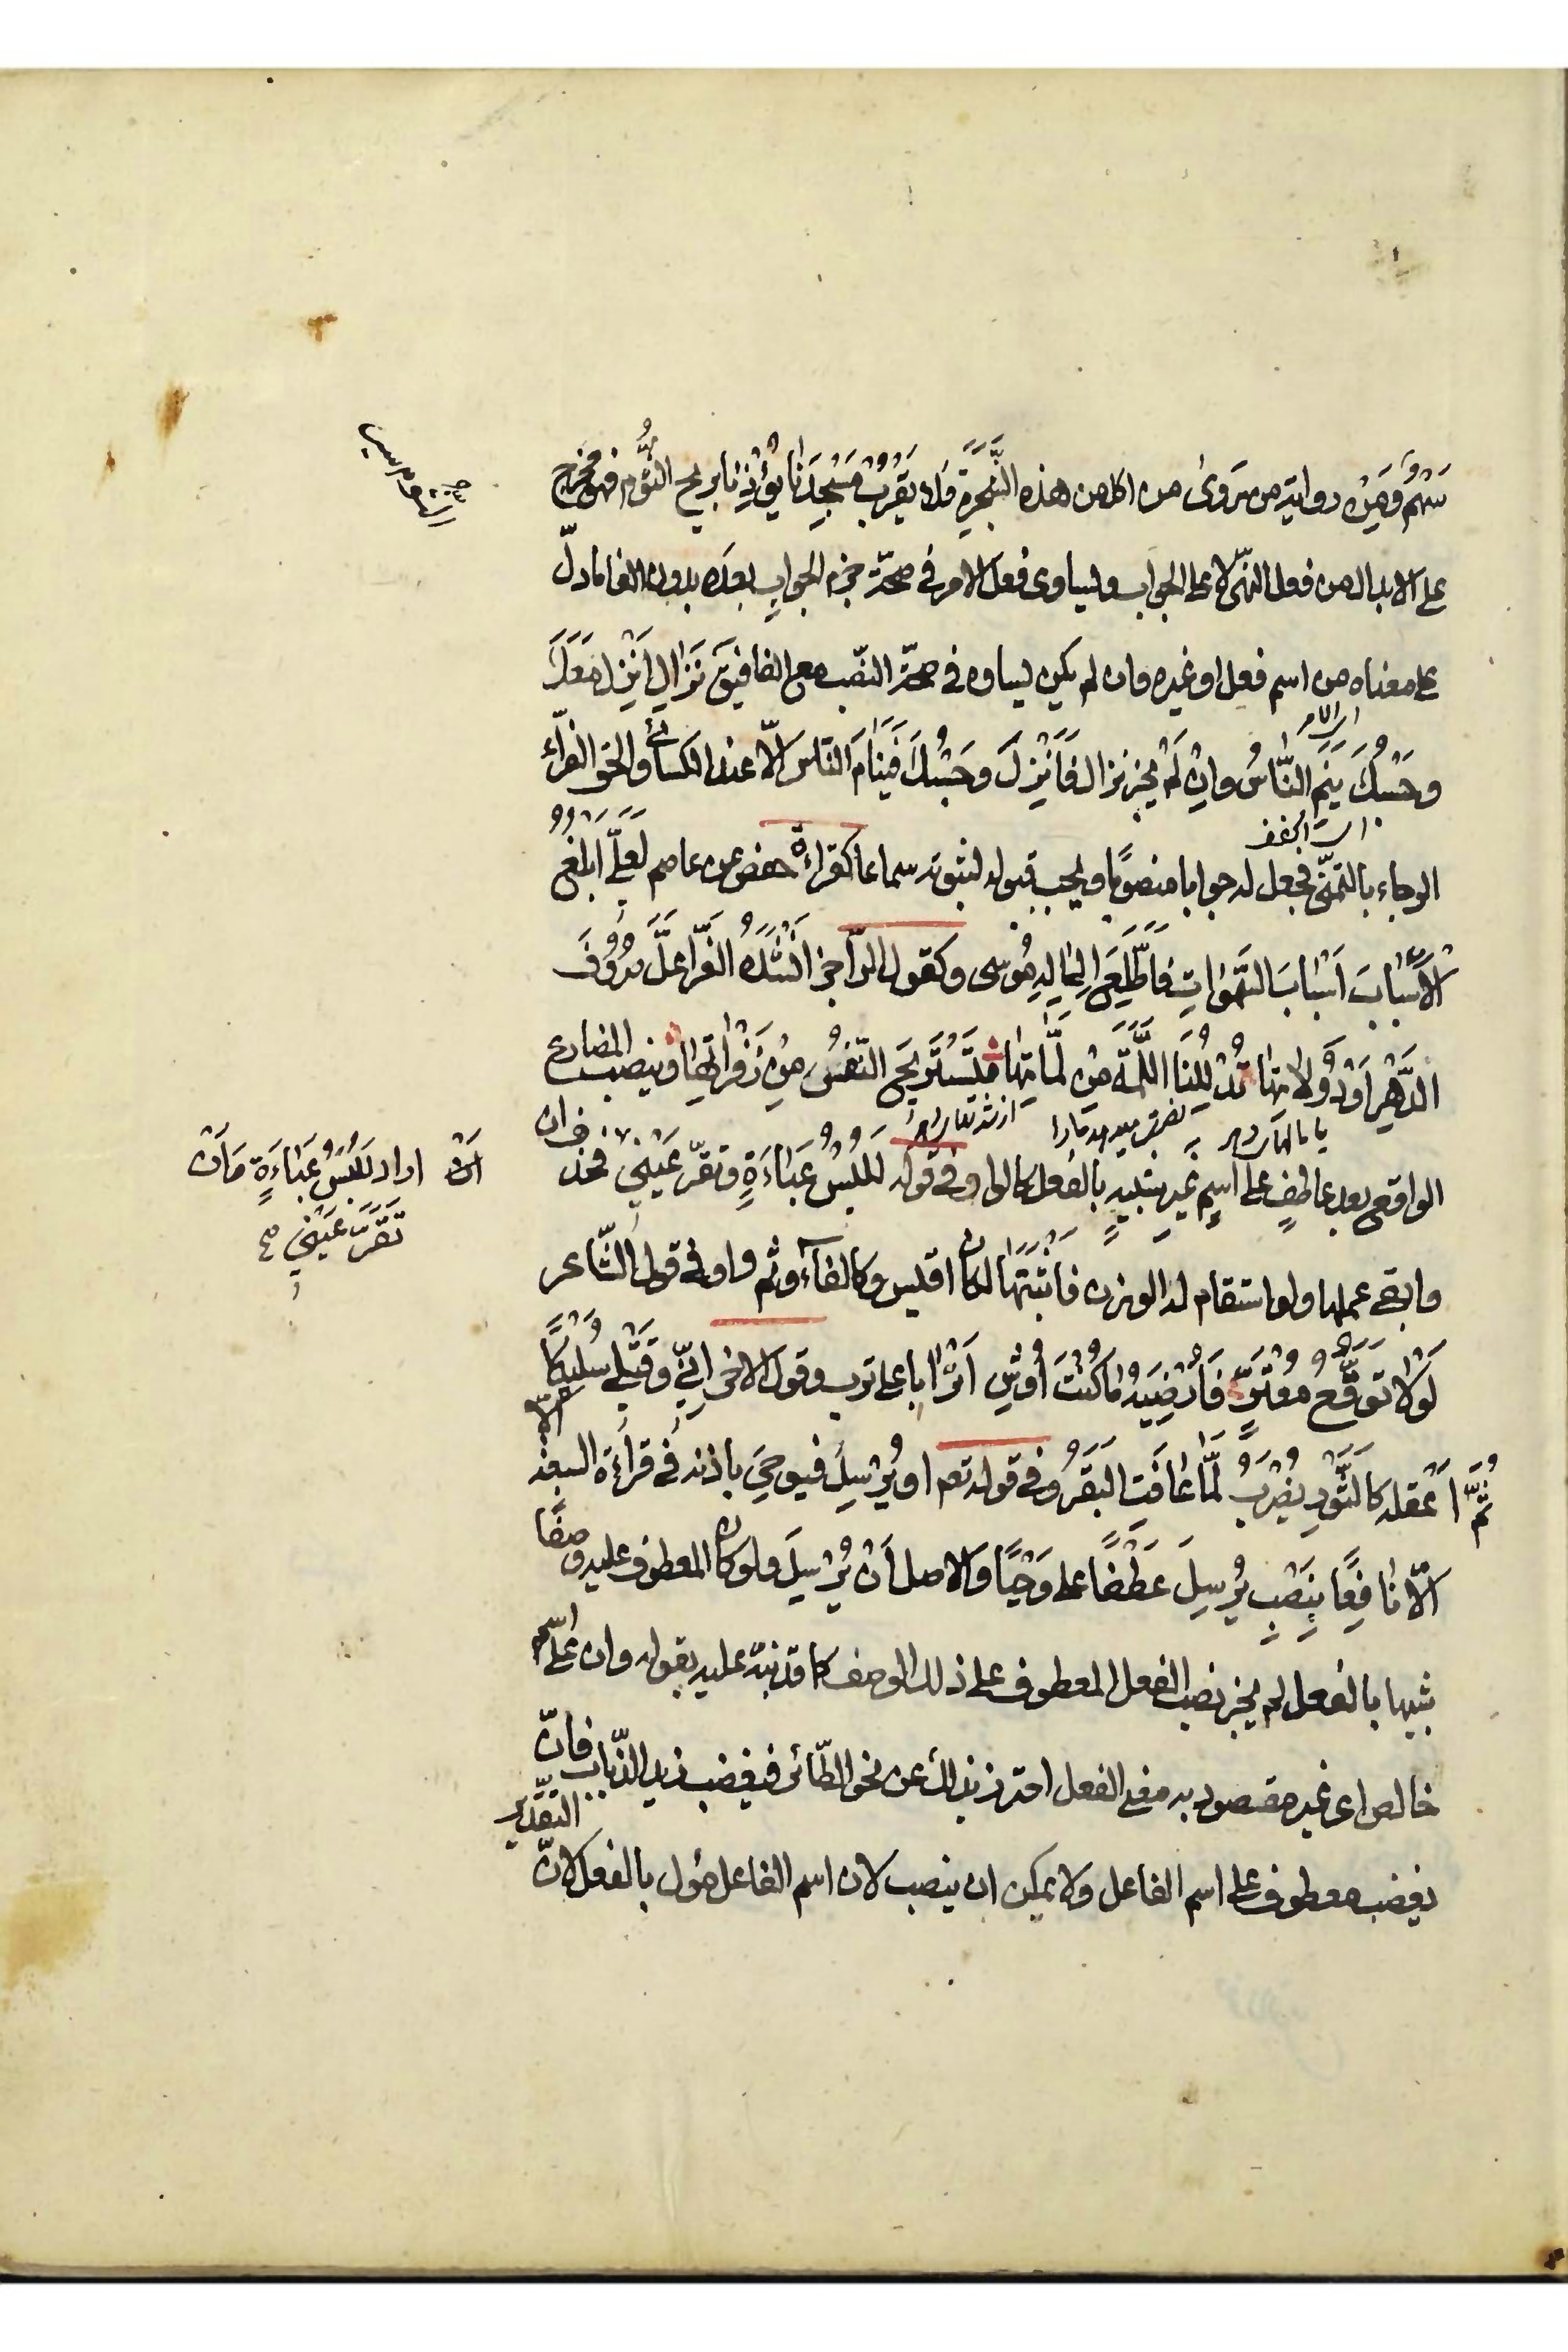 سَهْمٌ وَمِنْ رواية من يروى من اكل من هذه الشَّجَرَةِ فلا يَقْرُبْ مَسْجِدَنا يُؤْذِنا بريح الثُّوم فهو مخرّج
على الابدال من فعل النهى لا على الجواب ويساوى فعل الامر فى صحّة جزم الجواب بعده بدون الفا ما دلّ
على معناه من اسم فعل او غيره وان لم يكن يساوه فى صحّة النّصب مع الفا فيق نَزالِ اَنْزِل مَعَكَ
اى الامر
وحَسْبُكَ يَنَمِ النّاسُ وان لَمْ يجز نزال فَاَنْزِلَ وحَسْبُكَ فَيَنامَ النّاس الّا عند الكسائى والحق الفرّاء
الرجاء بالتمنّى فجعل له جوابا منصوبًا ويجب قبوله لثبوته سماعا كقراءة حفص عن عاصم لَعَلّى اَبْلُغُ
الْاَسْبابَ اَسْبابَ السَّمٰواتِ فَاَطَّلِعَ اِلٰى اِلٰهِ مُوسى وكقول الرّاجز اَنْشَدَهُ الفَرّا عَلَّ صُرُوفَ
الدَّهْرِ اَوْ دُولاتِها تُدِلْنَا اللَّمَّةَ مِنْ لَمّاتِها فَتَسْتَرِيحَ النّفْسُ مِنْ زَفْراتِها وينصب المضارع
الواقع بعد عاطفٍ على اسمٍ غيرِ شبيهٍ بالفعل كالواو فى قوله لَلُبْسُ عَباءَةٍ وتقرّ عَيْنى فحذف ان
اَىْ اراد لَلُبْسُ عَباءَةٍ وَاَنْ
تَقَرَّ عَيْنى صح
وابقى عملها ولو استقام له الوزن فاَثْبَتَها لكان اقيس وكالفاء وثم واو فى قول الشّاعر
لَوْلا تَوَقُّعُ مُعْتَرٍّ فَاُرْضِيَهُ ما كُنْتُ اُوثِرُ اَتْرابا على ترب وقول الاخر اِنّى وَقَتْلى سُلَيْكًا
ثُمَّ اَعْقِلَه كالثَّوْرِ يُضْرَبُ لَمّا عافَتِ البَقَرُ وفى قوله تعم او يُرْسِلَ فيوحىَ باذنه فى قراءة السبعة
الّا نافِعًا بِنَصْبِ يُرْسِلَ عَطْفًا على وَحْيًا والاصل اَنْ يُرْسِلَ ولو كان المعطوف عليه وصفًا
شبيها بالفعل لم يجز نصب الفعل المعطوف على ذلك الوصف كما قد نبّه عليه بقوله وان على اسم
خالص اى غير مقصود به معنى الفعل احترز بذلك عن نحو الطّائر فيغضب زيد الذّباب فانّ
التقدير
يغضب معطوف على اسم الفاعل ولا يمكن ان ينصب لان اسم الفاعل مؤل بالفعل لانّ